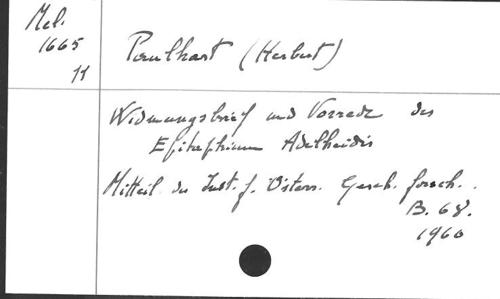 Mel.
1665
11
Paulhart (Herbert)
Widmungsbrief und Vorrede des
Epitaphium Adelheidis
Mitteil. des Inst. f. Österr. Gesch. forsch.
B. 68.
1960